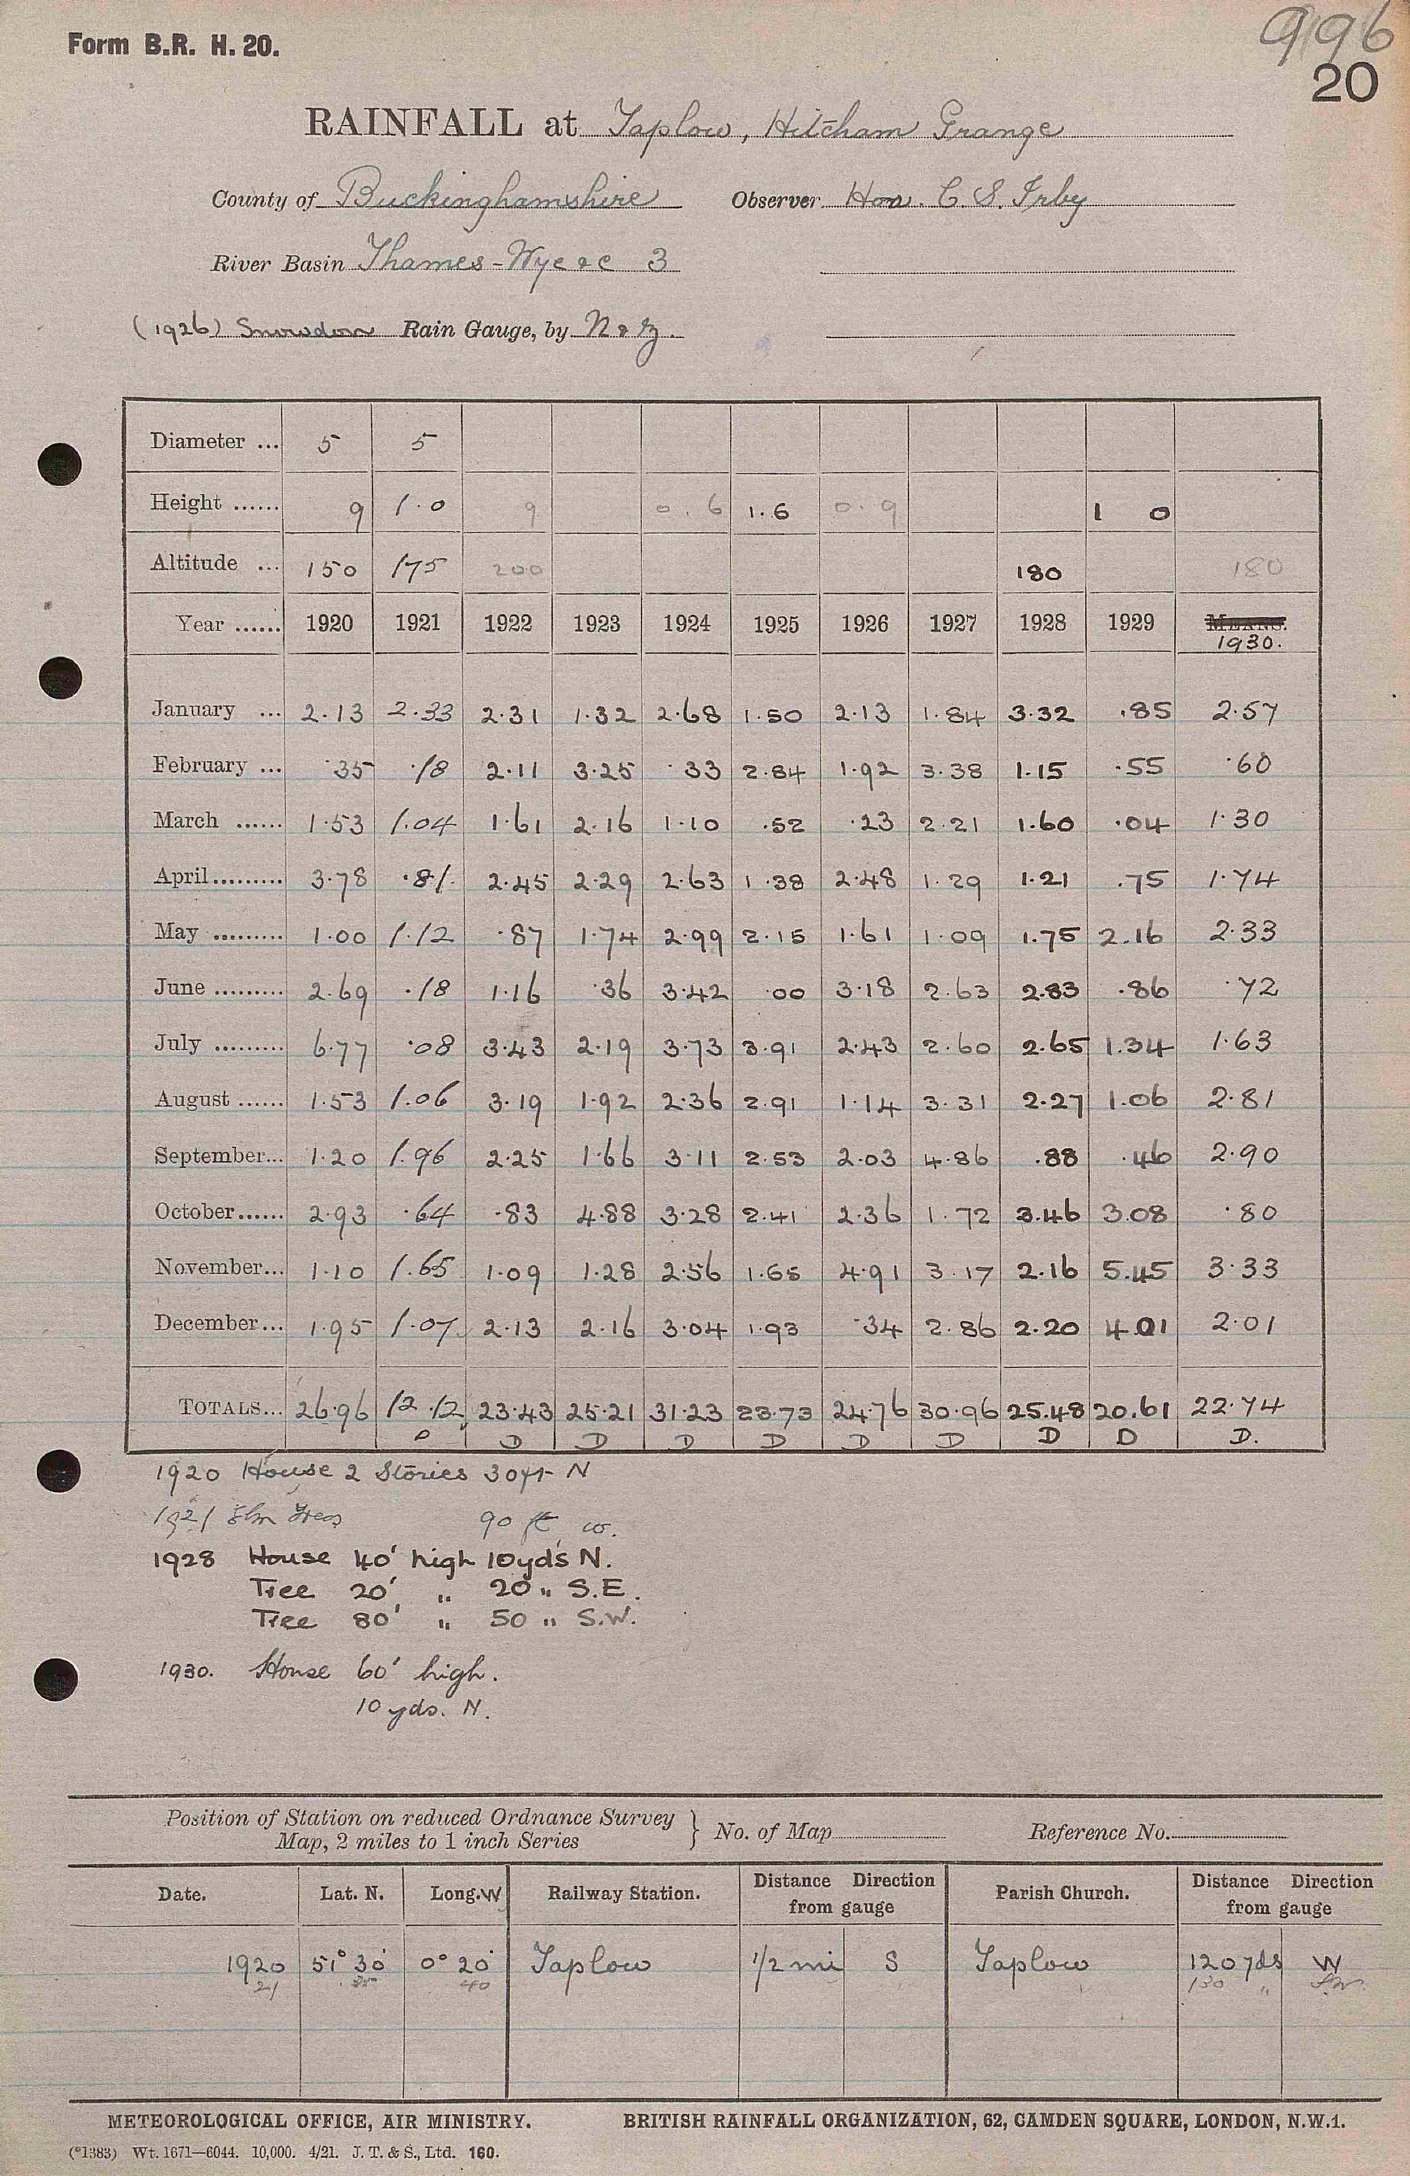 Form B.R. H. 20.
996
20
RAINFALL at Taplow, Hitcham Grange
County of Buckinghamshire Observer Hon. C. S. Irby
River Basin Thames - Wye &c 3
(1926) Snowdon Rain Gauge, by N & Z.
Diameter ... 5 5
Height ...... 9 1.0 9 0.6 1.6 0.9 1 0
Altitude ... 150 175 200 180 180
Year ...... 1920 1921 1922 1923 1924 1925 1926 1927 1928 1929 MEANS.
1930.
January ... 2.13 2.33 2.31 1.32 2.68 1.50 2.13 1.84 3.32 .85 2.57
February ... .35 .18 2.11 3.25 .33 2.84 1.92 3.38 1.15 .55 .60
March ...... 1.53 1.04 1.61 2.16 1.10 .52 .23 2.21 1.60 .04 1.30
April......... 3.78 .81 2.45 2.29 2.63 1.38 2.48 1.29 1.21 .75 1.74
May ......... 1.00 1.12 .87 1.74 2.99 2.15 1.61 1.09 1.75 2.16 2.33
June ......... 2.69 .18 1.16 .36 3.42 .00 3.18 2.63 2.83 .86 .72
July ......... 6.77 .08 3.43 2.19 3.73 3.91 2.43 2.60 2.65 1.34 1.63
August ...... 1.53 1.06 3.19 1.92 2.36 2.91 1.14 3.31 2.27 1.06 2.81
September... 1.20 1.96 2.25 1.66 3.11 2.53 2.03 4.86 .88 .46 2.90
October...... 2.93 .64 .83 4.88 3.28 2.41 2.36 1.72 3.46 3.08 .80
November... 1.10 1.65 1.09 1.28 2.56 1.65 4.91 3.17 2.16 5.45 3.33
December... 1.95 1.07 2.13 2.16 3.04 1.93 .34 2.86 2.20 4.01 2.01
TOTALS... 26.96 12.12 23.43 25.21 31.23 23.73 24.76 30.96 25.48 20.61 22.74
D D D D D D D D D D.
1920 House 2 Stories 30ft N
1921 Elm Trees 90 ft W.
1928 House 40' high 10yds N.
Tree 20' " 20 " S.E.
Tree 80' " 50 " S.W.
1930. House 60' high.
10 yds. N.
Position of Station on reduced Ordnance Survey
Map, 2 miles to 1 inch Series } No. of Map Reference No.
Date. Lat. N. Long. W Railway Station. Distance Direction from gauge Parish Church. Distance Direction from gauge
1920 51° 30' 0° 20' Taplow 1/2 mi S Taplow 120 yds W
21 40 130 " S.W.
METEOROLOGICAL OFFICE, AIR MINISTRY. BRITISH RAINFALL ORGANIZATION, 62, CAMDEN SQUARE, LONDON, N.W.1.
(*1383) Wt. 1671—6044. 10,000. 4/21. J. T. & S., Ltd. 160.